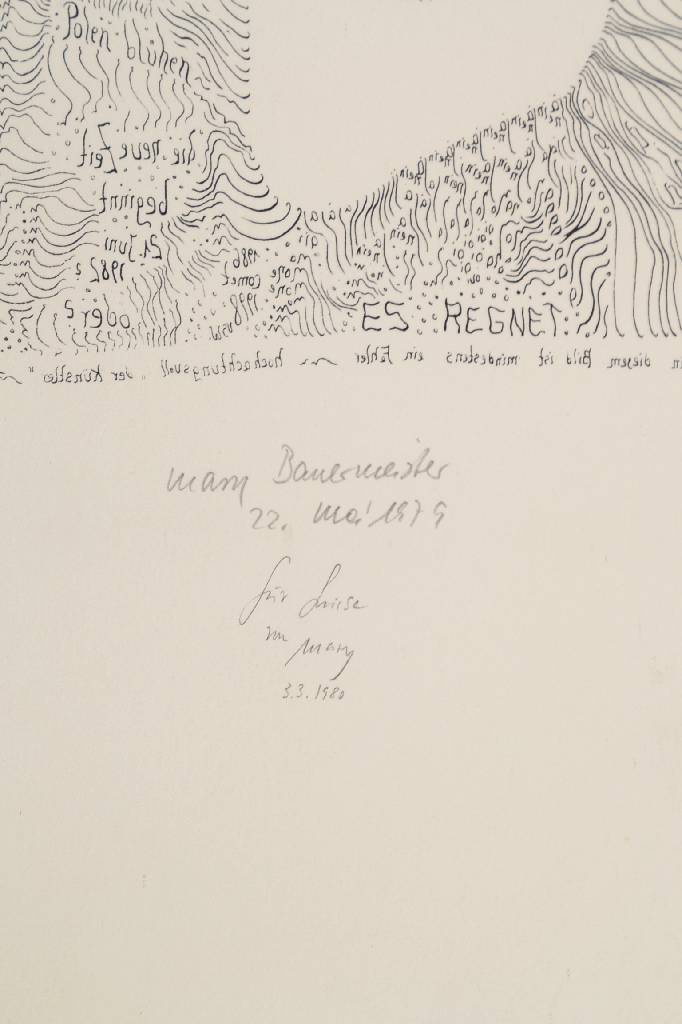 Polen blühen
die neue Zeit
beginnt
21. Juni
1982?
oder?
1986
comet
1998
usw.
ES REGNET
in diesem Bild ist mindestens ein Fehler hochachtungsvoll "der Künstler"
mary Bauermeister
22. Mai 1979
für Luise
von Mary
3.3.1980